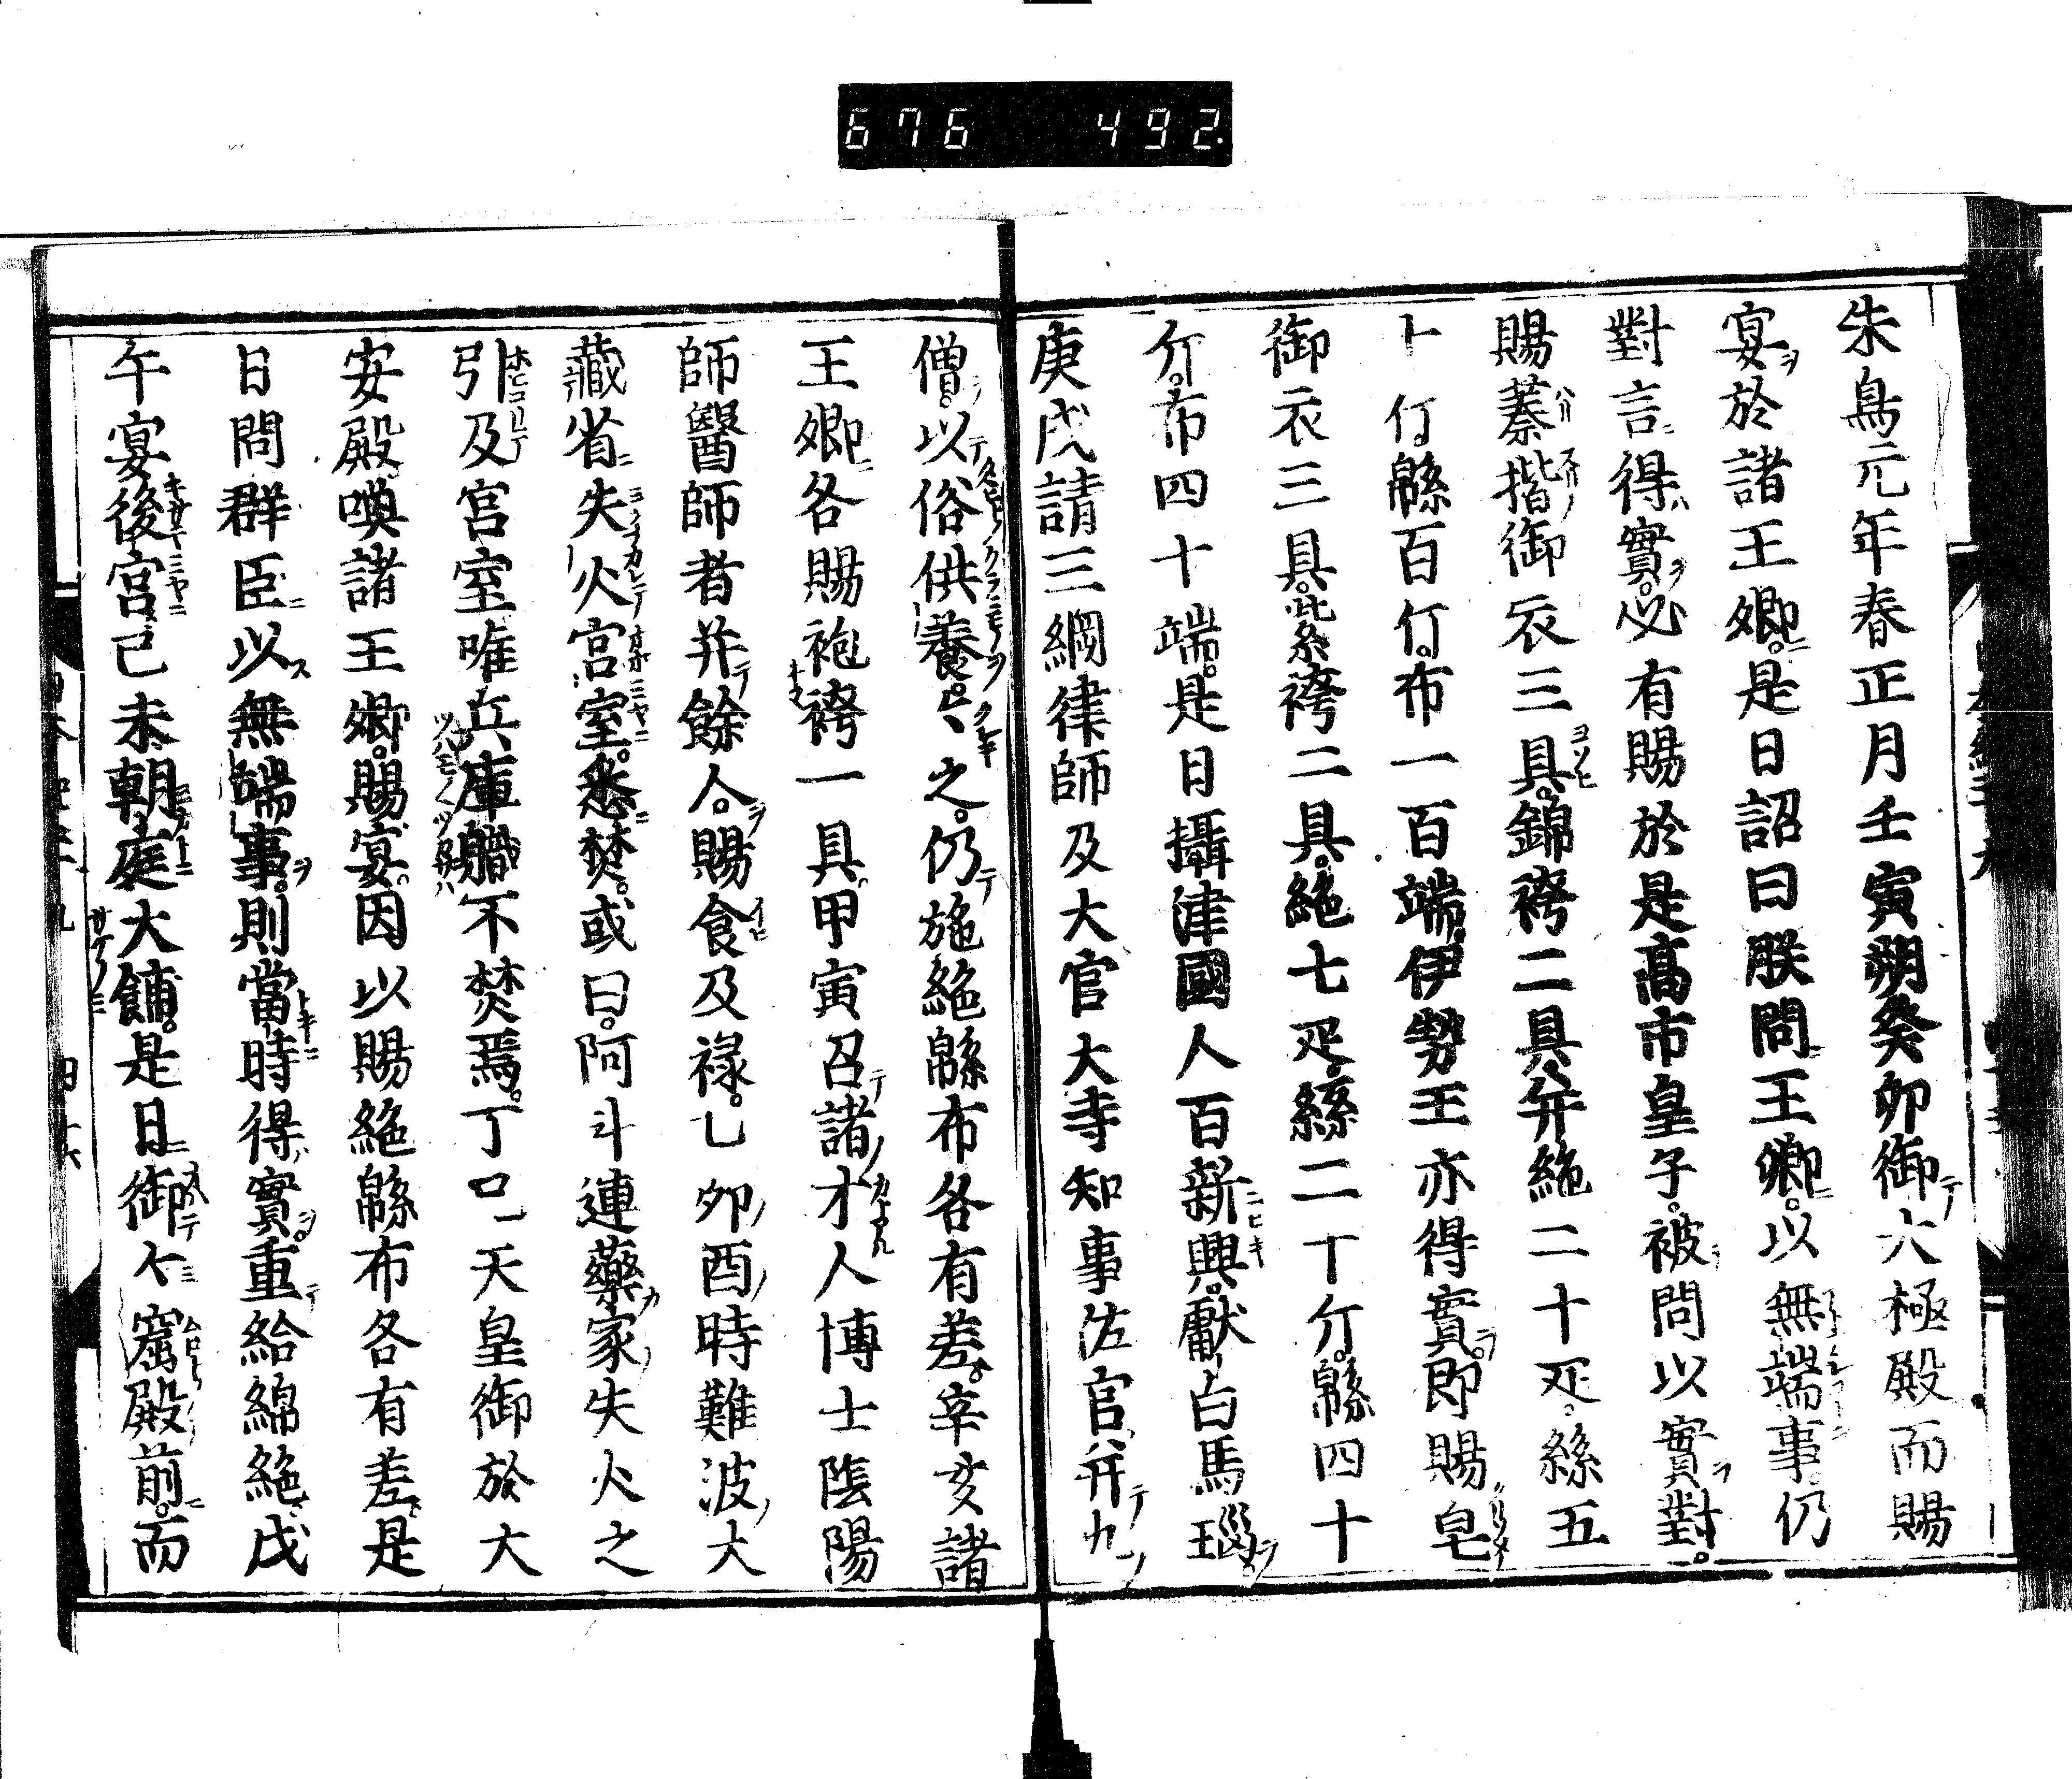 676 492
朱鳥元年春正月壬寅朔癸卯御大極殿而賜
宴於諸王卿。是日詔曰朕問王卿。以無端事仍
對言得實。必有賜於是高市皇子。被問以實對。
賜蓁揩御衣三具。錦袴二具并絁二十疋。絲五
十仃緜百仃。布一百端。伊勢王亦得實。即賜皂
御衣三具。紫袴二具。絁七疋。絲二十斤。緜四十
斤。布四十端。是日攝津國人百新興。獻白馬瑙。
庚戌請三綱律師及大官大寺知事佐官并九
僧。以俗供養。々之。仍施絁緜布各有差。辛亥諸
王卿各賜袍袴一具。甲寅召諸才人博士陰陽
師醫師者并餘人。賜食及禄。乙卯酉時難波大
藏省失火宮室。悉焚。或曰。阿斗連藥家失火之
引及宮室唯兵庫職不焚焉。丁巳天皇御於大
安殿喚諸王卿。賜宴。因以賜絁緜布各有差。是
日問群臣以無端事。則當時得實。重給綿絁。戊
午宴後宮己未朝庭大餔。是日御窟殿前。而